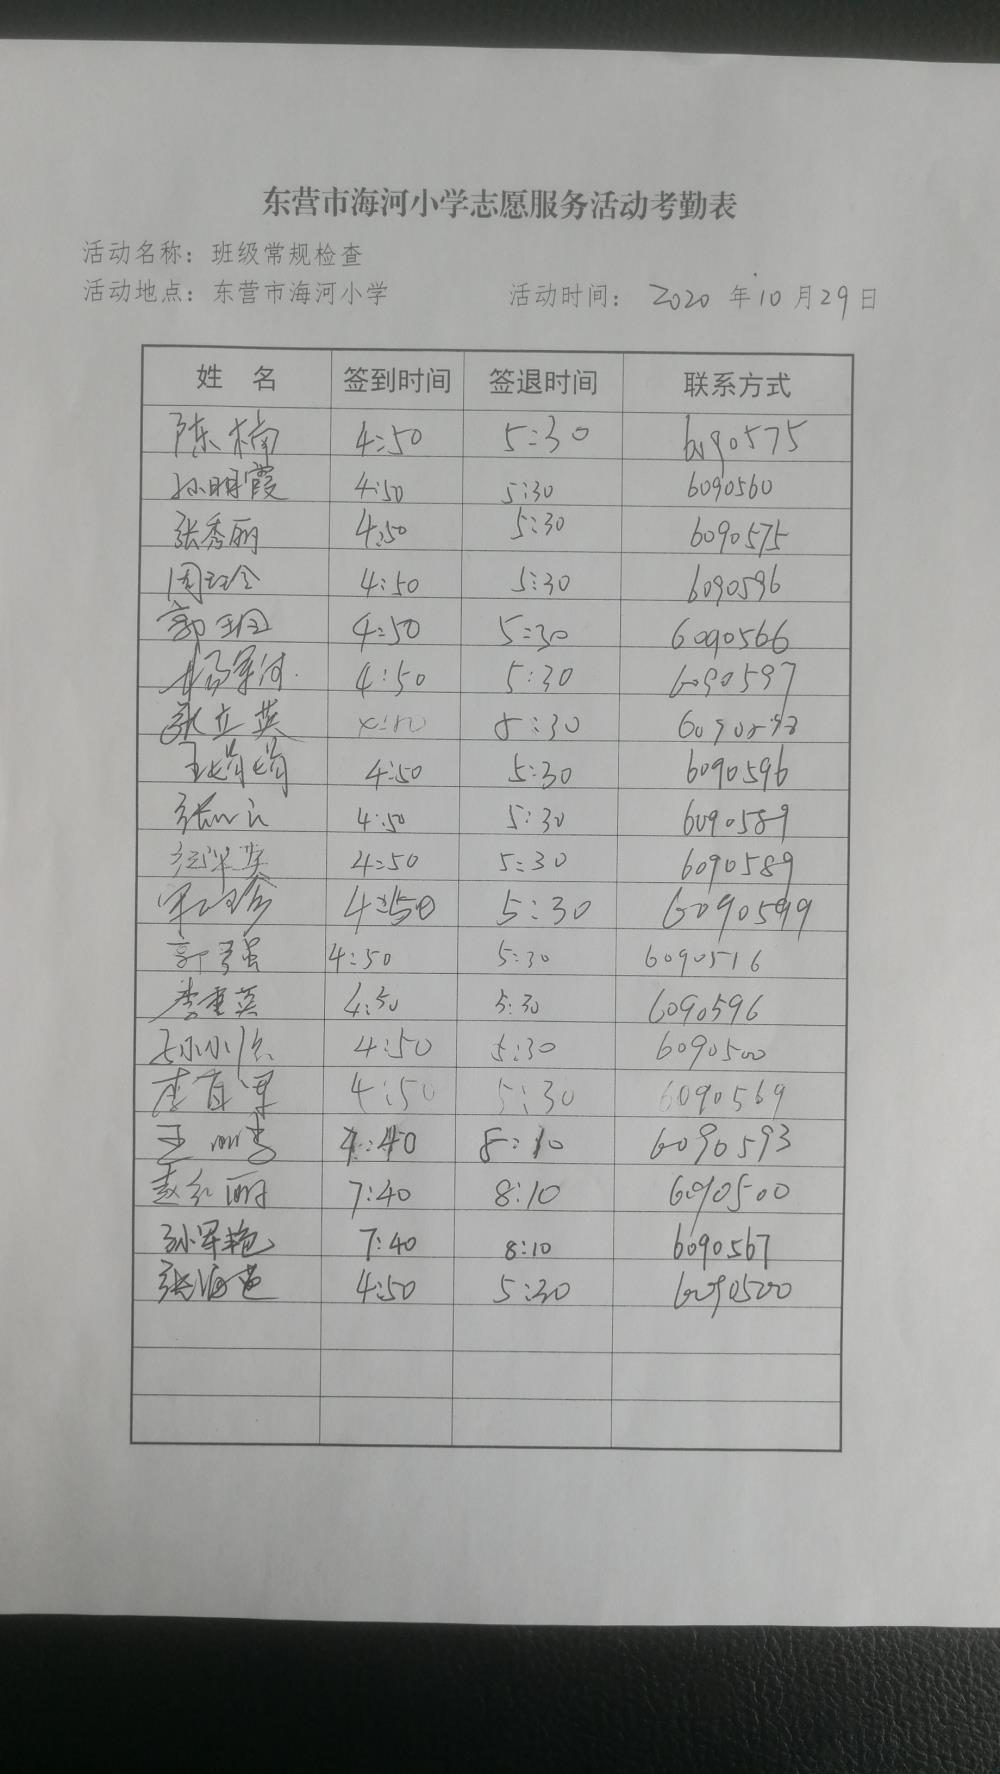 东营市海河小学志愿服务活动考勤表
活动名称：班级常规检查
活动地点：东营市海河小学 活动时间：2020年10月29日
姓 名 签到时间 签退时间 联系方式
陈楠 4:50 5:30 6090575
孙明霞 4:50 5:30 6090560
张秀丽 4:50 5:30 6090575
周红玲 4:50 5:30 6090596
郭 4:50 5:30 6090566
杨军河 4:50 5:30 6090597
张立英 5:30
王娟娟 4:50 5:30 6090596
张 4:50 5:30 6090589
4:50 5:30 6090589
4:50 5:30 6090599
郭强 4:50 5:30 6090516
李重英 4:50 5:30 6090596
4:50 5:30 6090500
李 4:50 5:30 6090569
王 8:10 6090593
赵红丽 7:40 8:10 6090500
孙军艳 7:40 8:10 6090567
张海 4:50 5:30 6090500